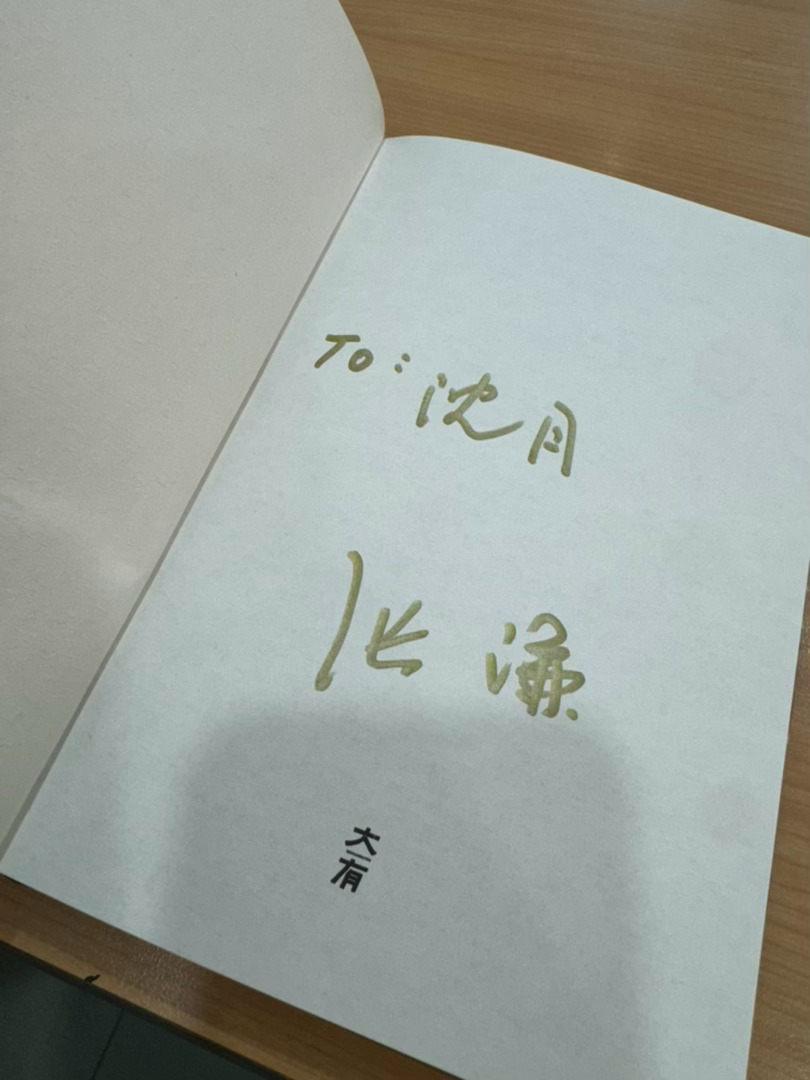 To：沈月
张谦
大有